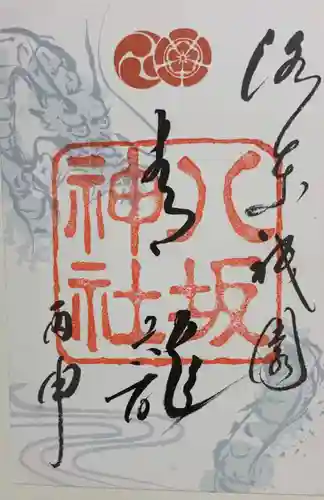 洛東祇園
青龍
八坂神社
丙申